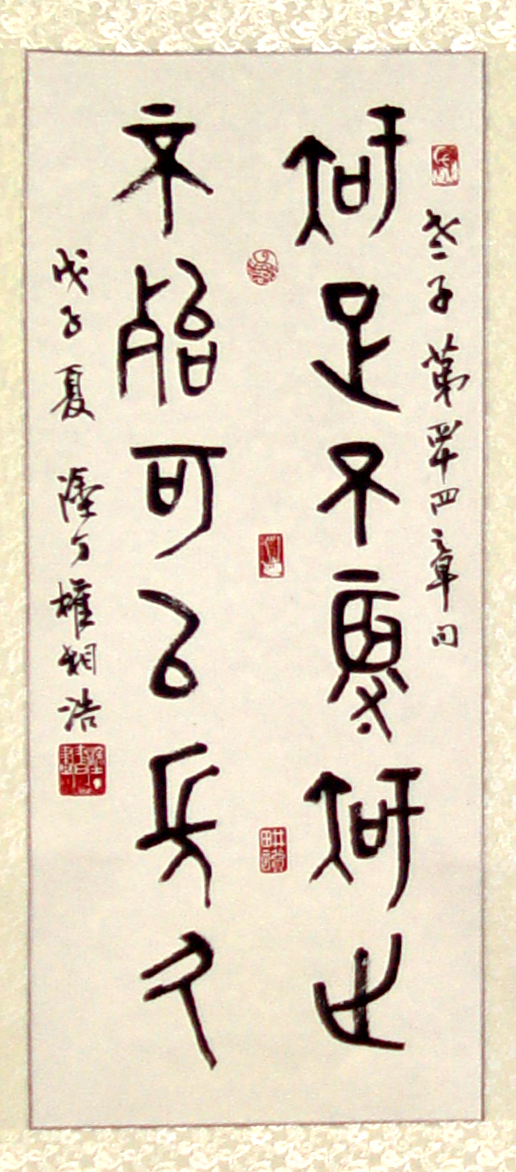 老子 第四十四章句
知足不辱知止
不殆可以長久
戊子夏 塗丁 權相浩